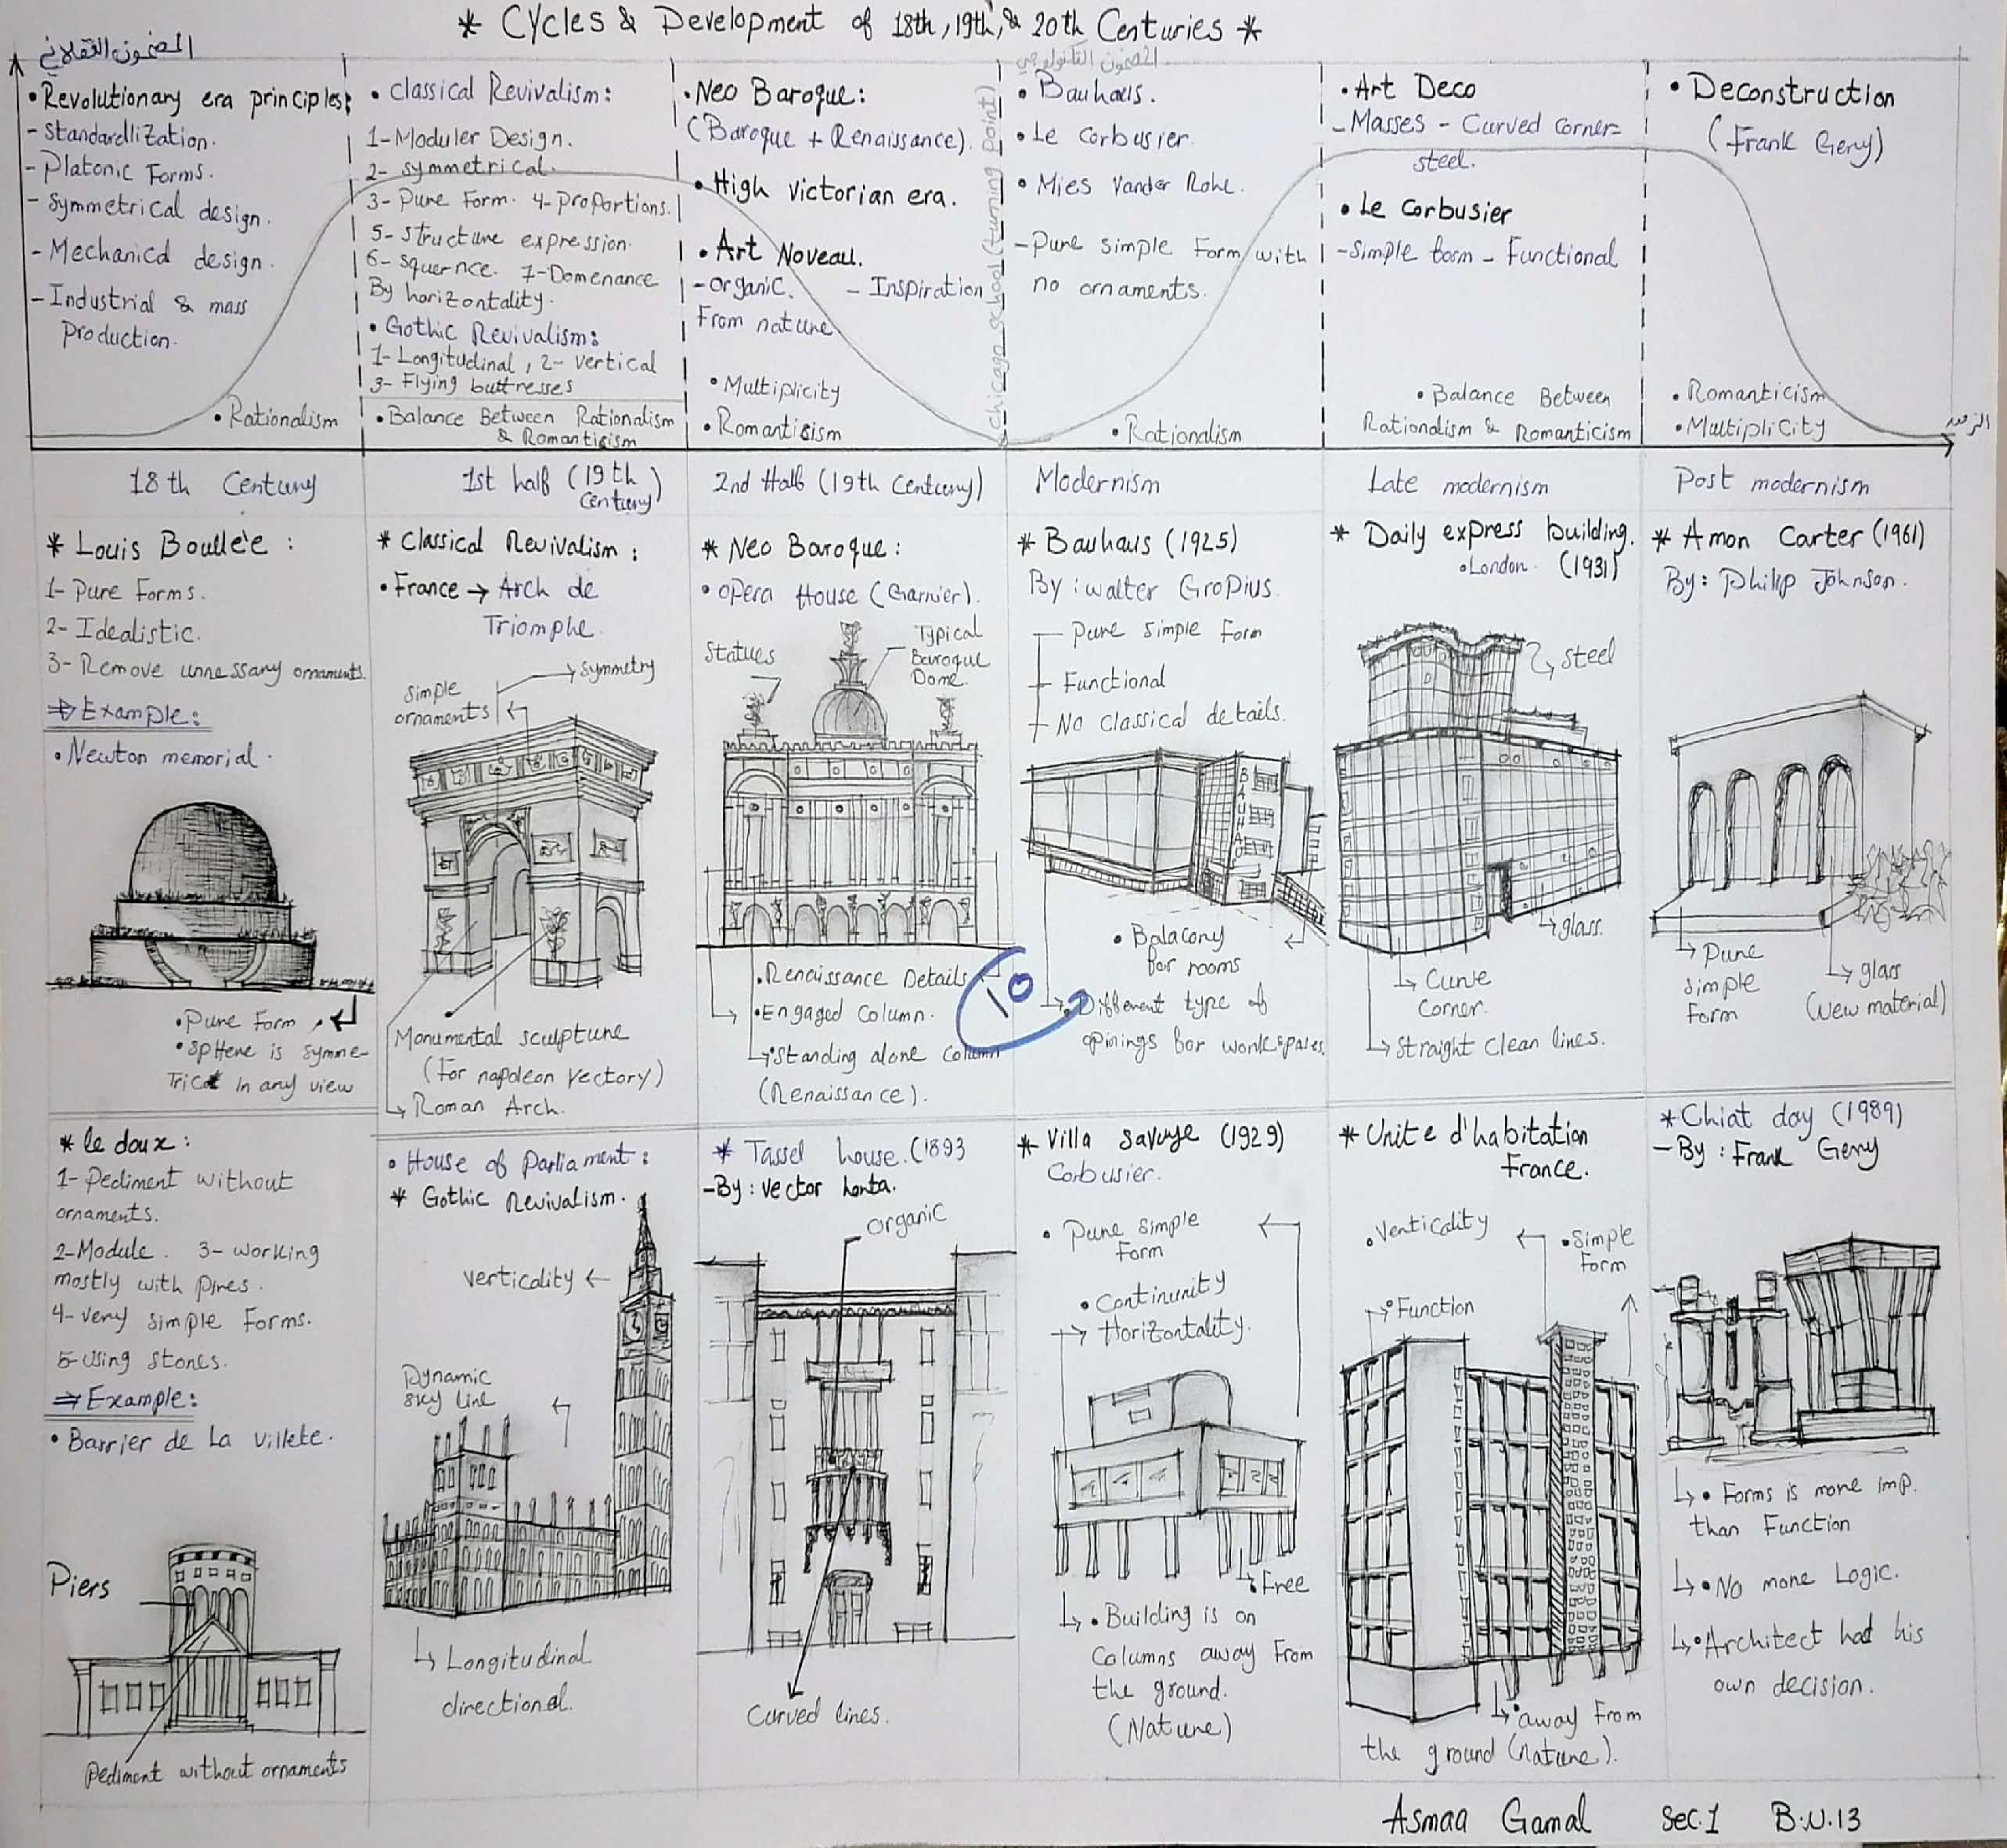 * Cycles & Development of 18th, 19th, & 20th Centuries *
المضمون العقلاني
• Revolutionary era principles:
- Standardlization.
- Platonic Forms.
- Symmetrical design.
- Mechanical design.
- Industrial & mass
Production.
• Rationalism
• Classical Revivalism:
1- Moduler Design.
2- Symmetrical.
3- Pure Form. 4- Proportions.
5- Structure expression.
6- Squernce. 7- Domenance
By horizontality.
• Gothic Revivalism:
1- Longitudinal, 2- vertical
3- Flying buttresses
• Balance Between Rationalism
& Romanticism
• Neo Baroque:
(Baroque + Renaissance).
• High Victorian era.
• Art Noveau.
- Organic. - Inspiration
From nature
• Multiplicity
• Romanticism
chicago school (turning point)
المضمون التكنولوجي
• Bauhaus.
• Le Corbusier.
• Mies Vander Rohe.
- Pure simple Form with
no ornaments.
• Rationalism
• Art Deco
- Masses - Curved corner-
steel.
• Le Corbusier
- Simple form - Functional
• Balance Between
Rationalism & Romanticism
• Deconstruction
(Frank Gery)
• Romanticism
• Multiplicity
الزمن
18th Century
1st half (19th
Century)
2nd Half (19th Century)
Modernism
Late modernism
Post modernism
* Louis Boullèe:
1- Pure Forms.
2- Idealistic.
3- Remove unnessary ornaments.
⇒ Example:
• Newton memorial.
• Pure Form
• SpHere is symme-
Trical In any view
* Classical Revivalism:
• France → Arch de
Triomphe.
Simple
ornaments
Symmetry
Monumental sculpture
(For napoleon vectory)
Roman Arch.
* Neo Baroque:
• Opera House (Garnier).
Statues
Typical
Baroque
Dome.
• Renaissance Details
• Engaged Column.
• Standing alone Column
(Renaissance).
10
* Bauhaus (1925)
By: walter Gropius.
Pure simple Form
Functional
No Classical details.
BAUHAUS
• Balacony
for rooms
• Different type of
opinings for workspases.
* Daily express building.
• London. (1931)
steel
glass.
Curve
Corner.
Straight clean lines.
* Amon Carter (1961)
By: Philip Johnson.
Pure
simple
Form
glass
(New material)
* le doux:
1- Pediment without
ornaments.
2- Module. 3- working
mostly with Pires.
4- very simple Forms.
5- Using stones.
⇒ Example:
• Barrier de La villete.
Piers
Pediment without ornaments
• House of Parliament:
* Gothic Revivalism.
verticality
Dynamic
sky line
Longitudinal
directional.
* Tassel house. (1893
- By: vector horta.
organic
Curved lines.
* Villa Savoye (1929)
Corbusier.
• Pure Simple
Form
• Continunity
Horizontality.
Free
• Building is on
Columns away From
the ground.
(Nature)
* Unite d'habitation
France.
• Verticality
• Simple
Form
• Function
• away From
the ground (nature).
* Chiat day (1989)
- By: Frank Gery
• Forms is more imp.
than Function
• No more Logic.
• Architect had his
own decision.
Asmaa Gamal Sec.1 B.N.13